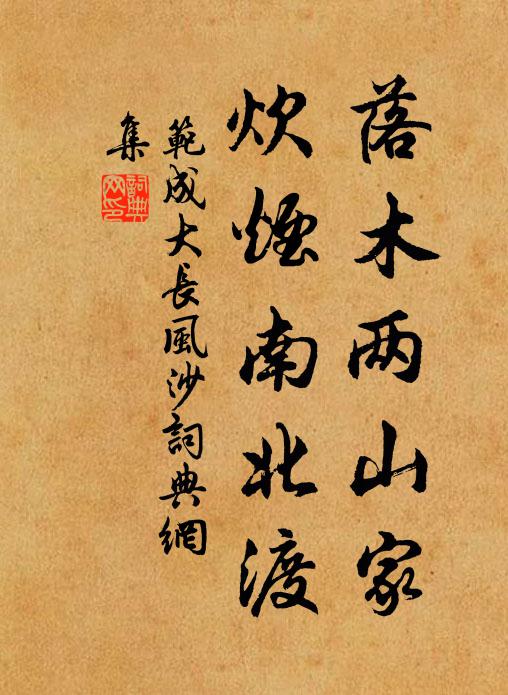 落木两山家
炊煙南北渡
範成大長風沙詞典網
集
詞典網印